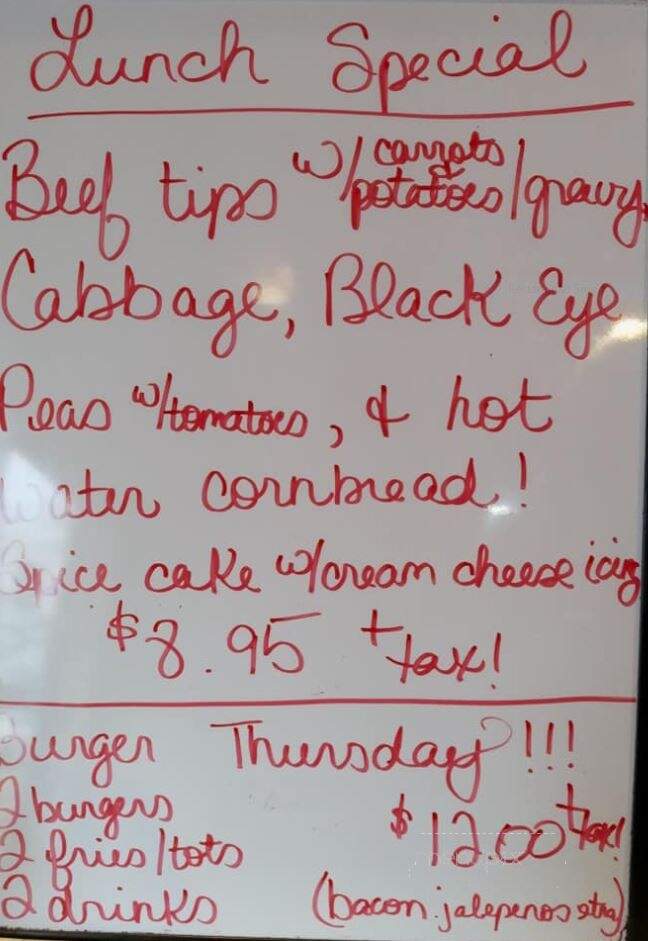 Lunch Special
Beef tips w/carrots & potatoes/gravy,
Cabbage, Black Eye
Peas w/tomatoes, & hot
water cornbread!
Spice cake w/cream cheese icing
$8.95 + tax!
Burger Thursday!!!
2 burgers
2 fries/tots
2 drinks
$12.00 + tax!
(bacon.jalepenos xtra)